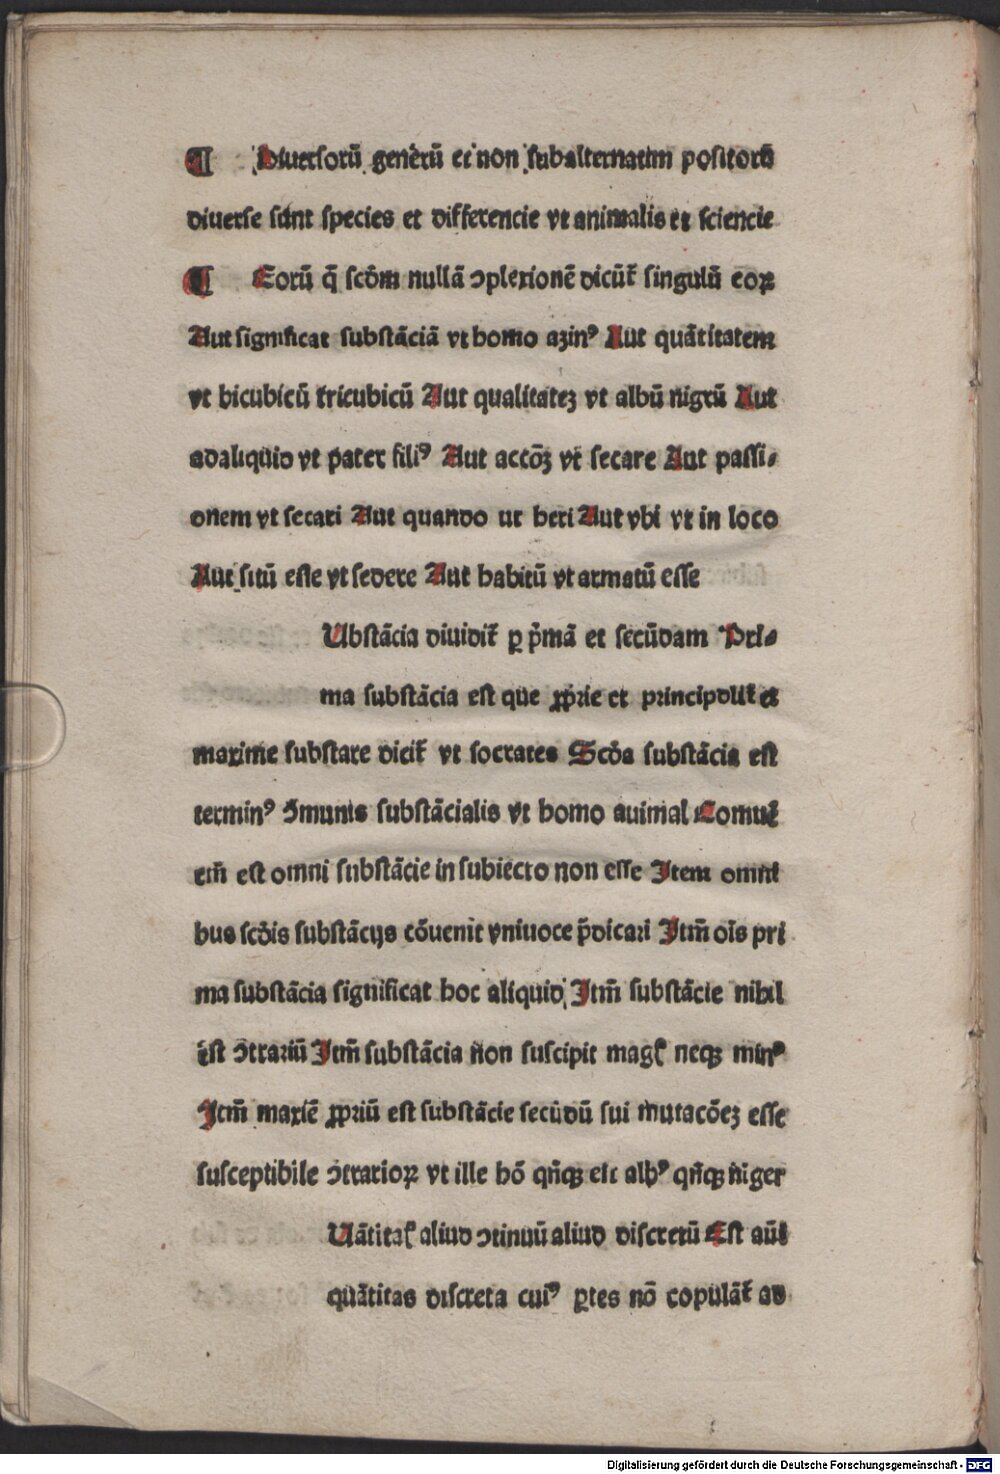 ¶ Diuersorū generū et non subalternatim positorū
diuerse sunt species et differencie vt animalis et sciencie
¶ Eorū q̄ scḋm nullā ↄplexionē dicūt᷑ singulū eoꝝ
Aut significat substāciā vt homo aꝫinꝰ Aut quātitatem
vt bicubicū tricubicū Aut qualitateꝫ vt albū nigrū Aut
adaliquid vt pater filiꝰ Aut accōꝫ vt secare Aut passi⸗
onem vt secari Aut quando ut heri Aut vbi vt in loco
Aut sitū esse vt sedere Aut habitū vt armatū esse
Ubstācia diuidit᷑ ꝑ p̄mā et secūdam Pri⸗
ma substācia est que ꝓprie et principolit᷑ et
maxime substare dicit᷑ vt socrates Scḋa substācia est
terminꝰ ↄ̄munis substācialis vt homo auimal Comūe
em̄ est omni substācie in subiecto non esse Item omni
bus scḋis substācijs cōuenit vniuoce p̄dicari Itm̄ oīs pri
ma substācia significat hoc aliquid Itm̄ substācie nihil
est ↄ̄trariū Itm̄ substācia non suscipit magꝭ neqꝫ minꝰ
Itm̄ maxīe ꝓpriū est substācie secūdū sui mutacōeꝫ esse
susceptibile ↄ̄trarioꝝ vt ille hō qn̄qꝫ est albꝰ qn̄qꝫ niger
Uātitaꝭ aliud ↄtinuū aliud discretū Est aūt
quātitas discreta cuiꝰ ꝑtes nō copulāt᷑ ad
Digitalisierung gefördert durch die Deutsche Forschungsgemeinschaft - DFG